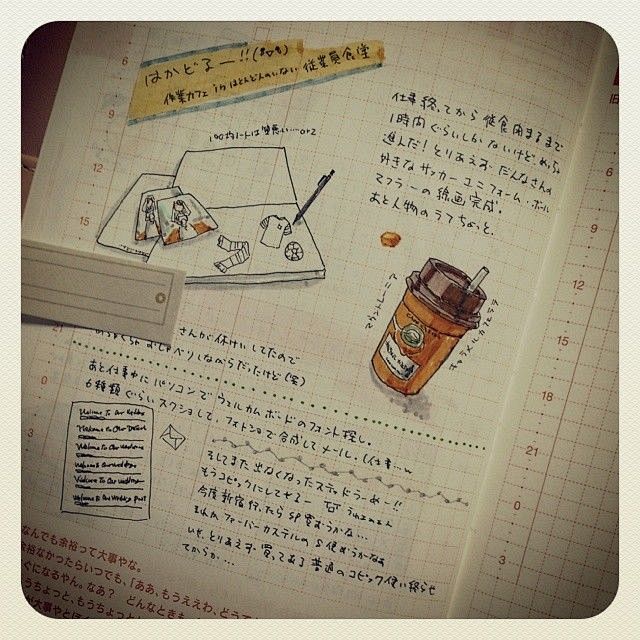 はかどるー!!
作業カフェ inほとんど人のいない従業員食堂
仕事終ってから従食閉まるまで
1時間ぐらいしかないけど、めっちゃ
進んだ!とりあえず、だんなさんの
好きなサッカーユニフォーム・ボール
マフラーの線画完成。
あと人物のラフちょっと。
100均ノートは
マウントレーニア
キャラメルカフェラテ
さんが休けいしてたので
おしゃべりしながらだったけど(笑)
あと仕事中にパソコンでウェルカムボードのフォント探し。
6種類ぐらいスクショして、フォトショで合成してメール。(仕事…w
Welcome To Our Wedding
Welcome To Our
Welcome To Our Wedding
Welcome To Our Wedding
Welcome To Our Wedding
Welcome To Our Wedding Party
そしてまた出なくなったステッドラーめー!!
もうコピックにしてやるー
今度新宿行ったらSP買おうかな…
ファーバーカステルのS使おうかなぁ
とりあえず買ってある普通のコピック使い終らせ
てからか…
なんでも余裕って大事やな。
余裕なかったらいつでも、「ああ、もうええわ、どう
ぐになるやん。なあ? どんなときも
うちょっと、もうちょっと
が大事やと
6
9
12
15
0
3
6
9
12
15
18
21
0
3